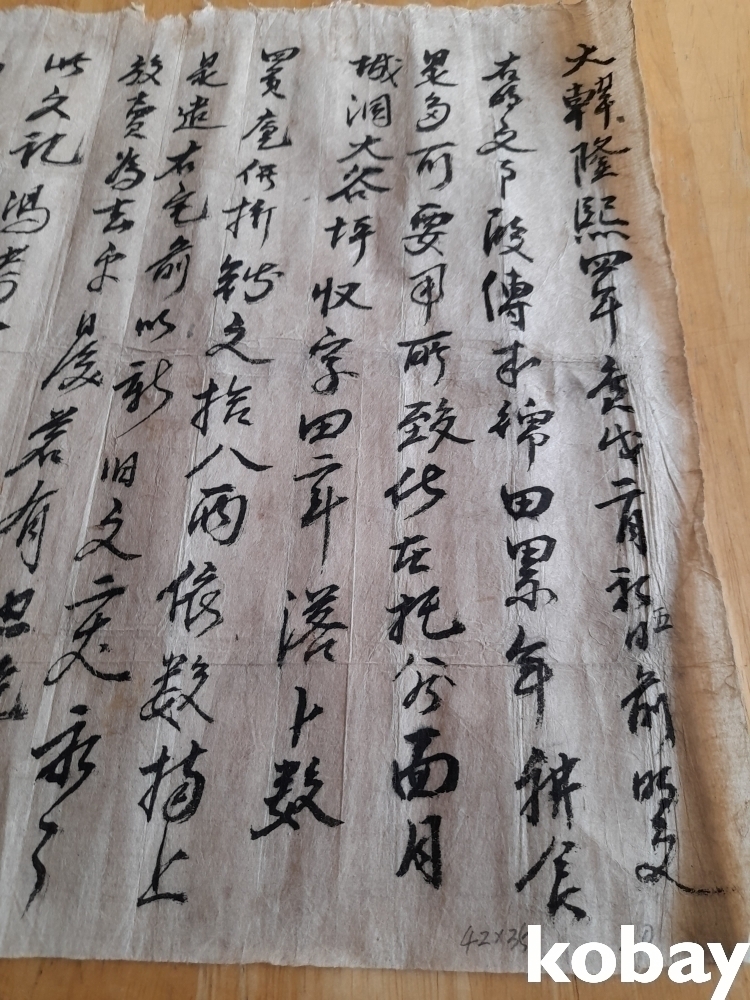 大韓隆熙四年庚戌二月初五日前明文
右明文事段傳來錦田累年耕食
是多可要用所致伏在托谷面月
城洞大谷坪收字田二斗落卜數
㐣庫價折錢文拾八兩依數捧上
是遣右宅前以新旧文二丈永永
放賣爲去乎日後若有
此文記憑考
42×35
①
kobay